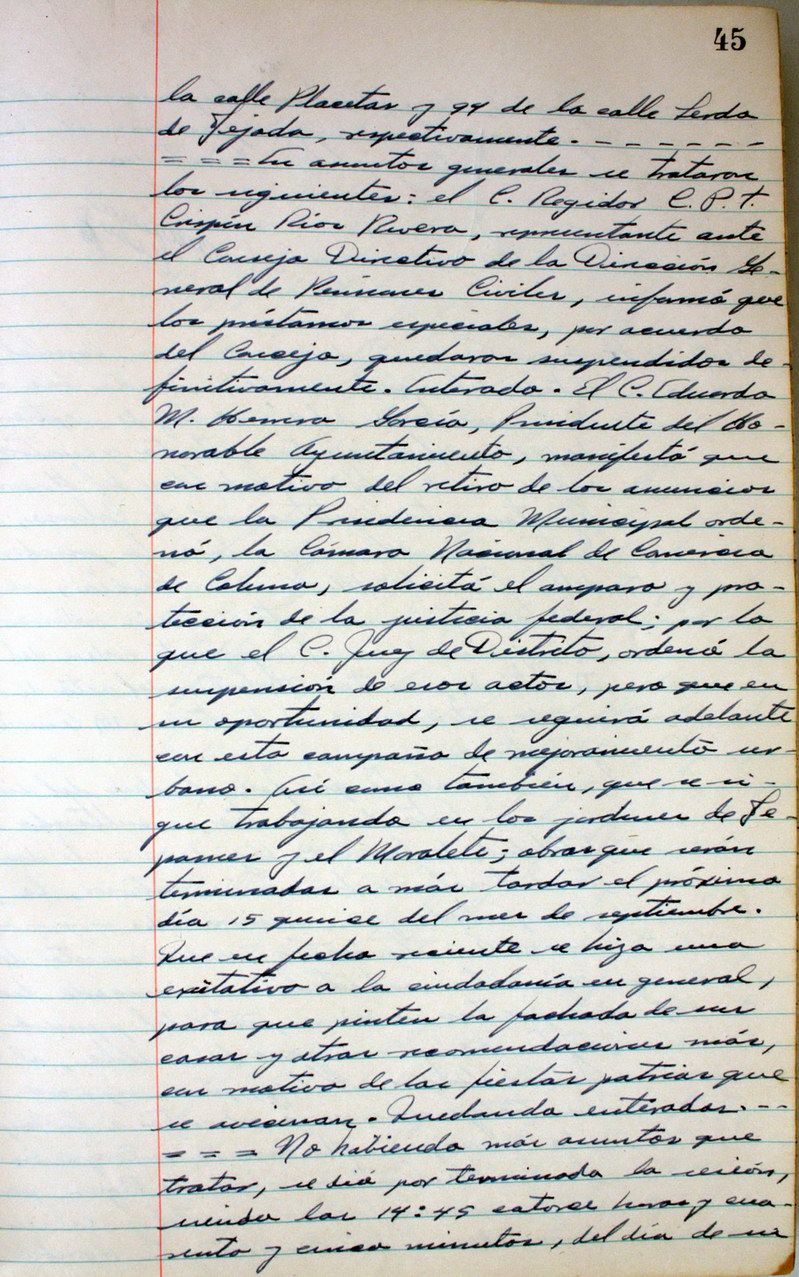 45
la calle Placetas y 94 de la calle Lerdo
de Tejada, respectivamente. - - - - - - -
= = = En asuntos generales se trataron
los siguientes: el C. Regidor C.P.T.
Crispín Ríos Rivera, representante ante
el Consejo Directivo de la Dirección Ge-
neral de Pensiones Civiles, informó que
los préstamos especiales, por acuerdo
del Consejo, quedaron suspendidos de-
finitivamente. Enterado. El C. Eduardo
M. Herrera García, Presidente del Ho-
norable Ayuntamiento, manifestó que
con motivo del retiro de los anuncios
que la Presidencia Municipal orde-
nó, la Cámara Nacional de Comercio
de Colima, solicitó el amparo y pro-
tección de la justicia federal; por lo
que el C. Juez de Distrito, ordenó la
suspensión de esos actos, pero que en
su oportunidad, se seguirá adelante
con esta campaña de mejoramiento ur-
bano. Así como también, que se si-
gue trabajando en los jardines de Te-
pames y el Moralete; obras que serán
terminadas a más tardar el próximo
día 15 quince del mes de septiembre.
Que en fecha reciente se hizo una
exitativa a la ciudadanía en general,
para que pinten la fachada de sus
casas y otras recomendaciones más,
con motivo de las fiestas patrias que
se avecinan. Quedando enterados. - -
= = = No habiendo más asuntos que
tratar, se dió por terminada la sesión,
siendo las 14:45 catorce horas y cua-
renta y cinco minutos, del día de su